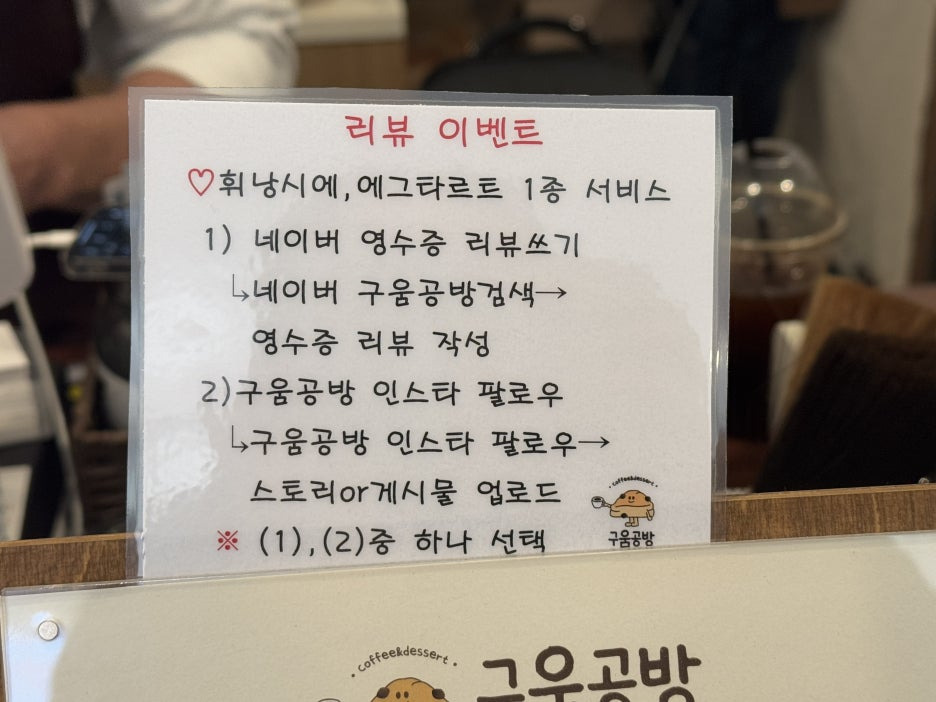 리뷰 이벤트
♡휘낭시에,에그타르트 1종 서비스
1) 네이버 영수증 리뷰쓰기
↳네이버 구움공방검색→
영수증 리뷰 작성
2)구움공방 인스타 팔로우
↳구움공방 인스타 팔로우→
스토리or게시물 업로드
※ (1),(2)중 하나 선택
·coffee&dessert·
구움공방
·coffee&dessert·
구움공방